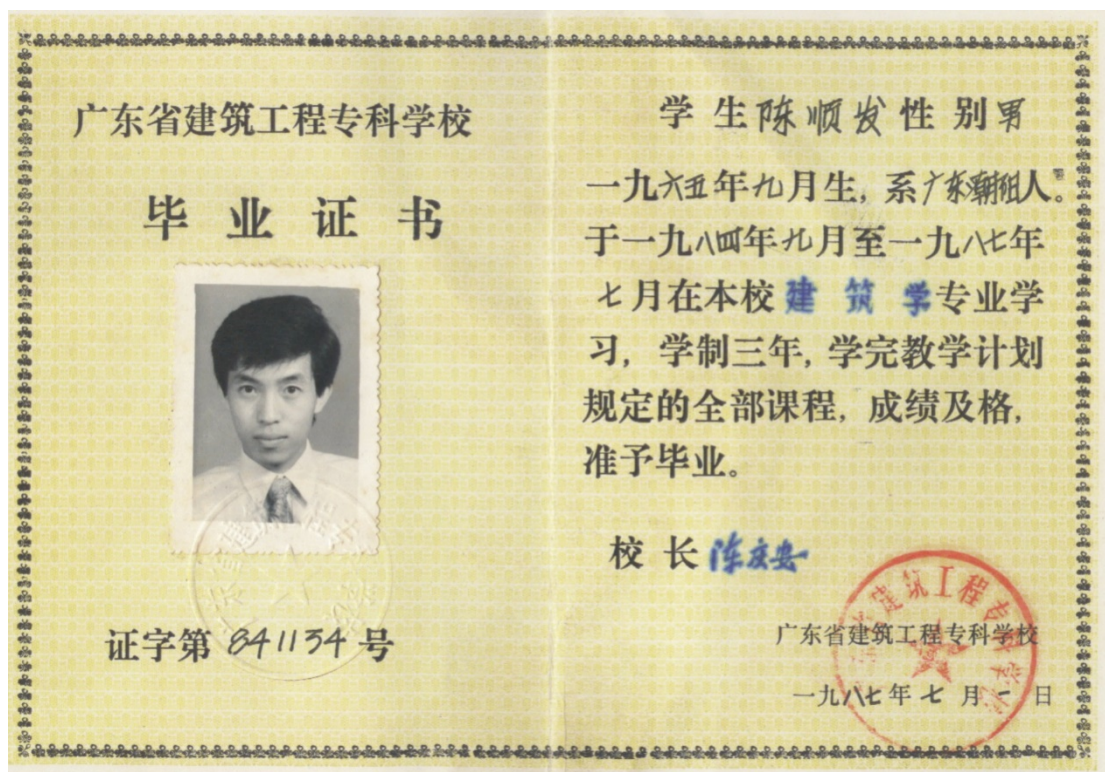 广东省建筑工程专科学校
毕业证书
证字第 841134 号
学生陈顺发性别男
一九六五年九月生，系广东潮阳人。
于一九八四年九月至一九八七年
七月在本校建筑学专业学
习，学制三年，学完教学计划
规定的全部课程，成绩及格，
准予毕业。
校长 陈庆安
广东省建筑工程专科学校
一九八七年七月一日
建筑工程专科学校